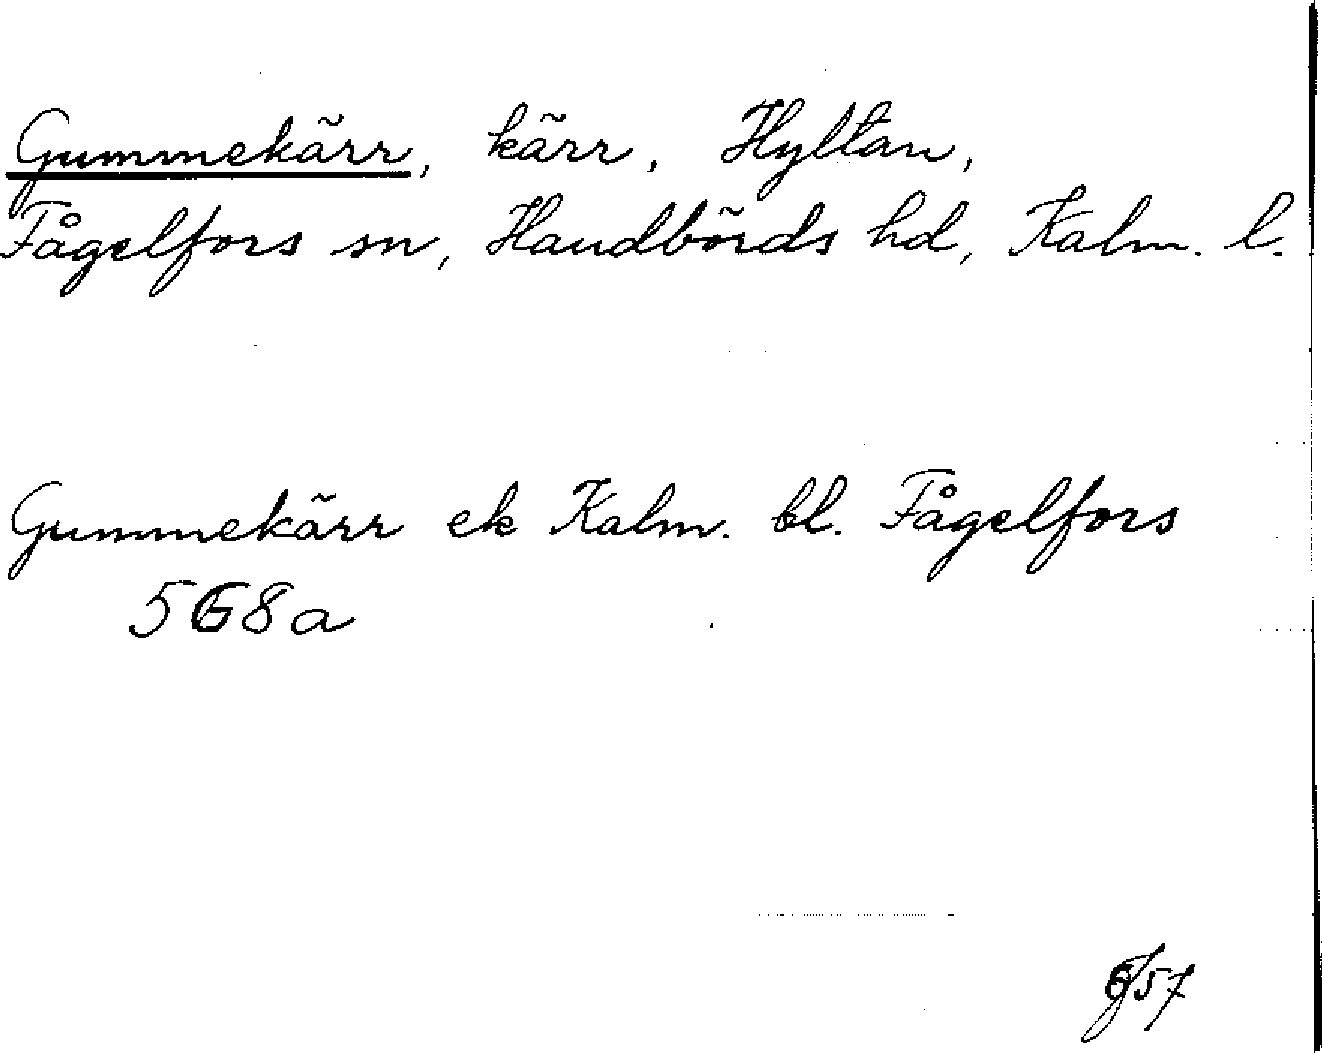 Gummekärr, kärr, Hyltan,
Fågelfors sn, Handbörds hd, Kalm. l.
Gummekärr ek Kalm. bl. Fågelfors
568a